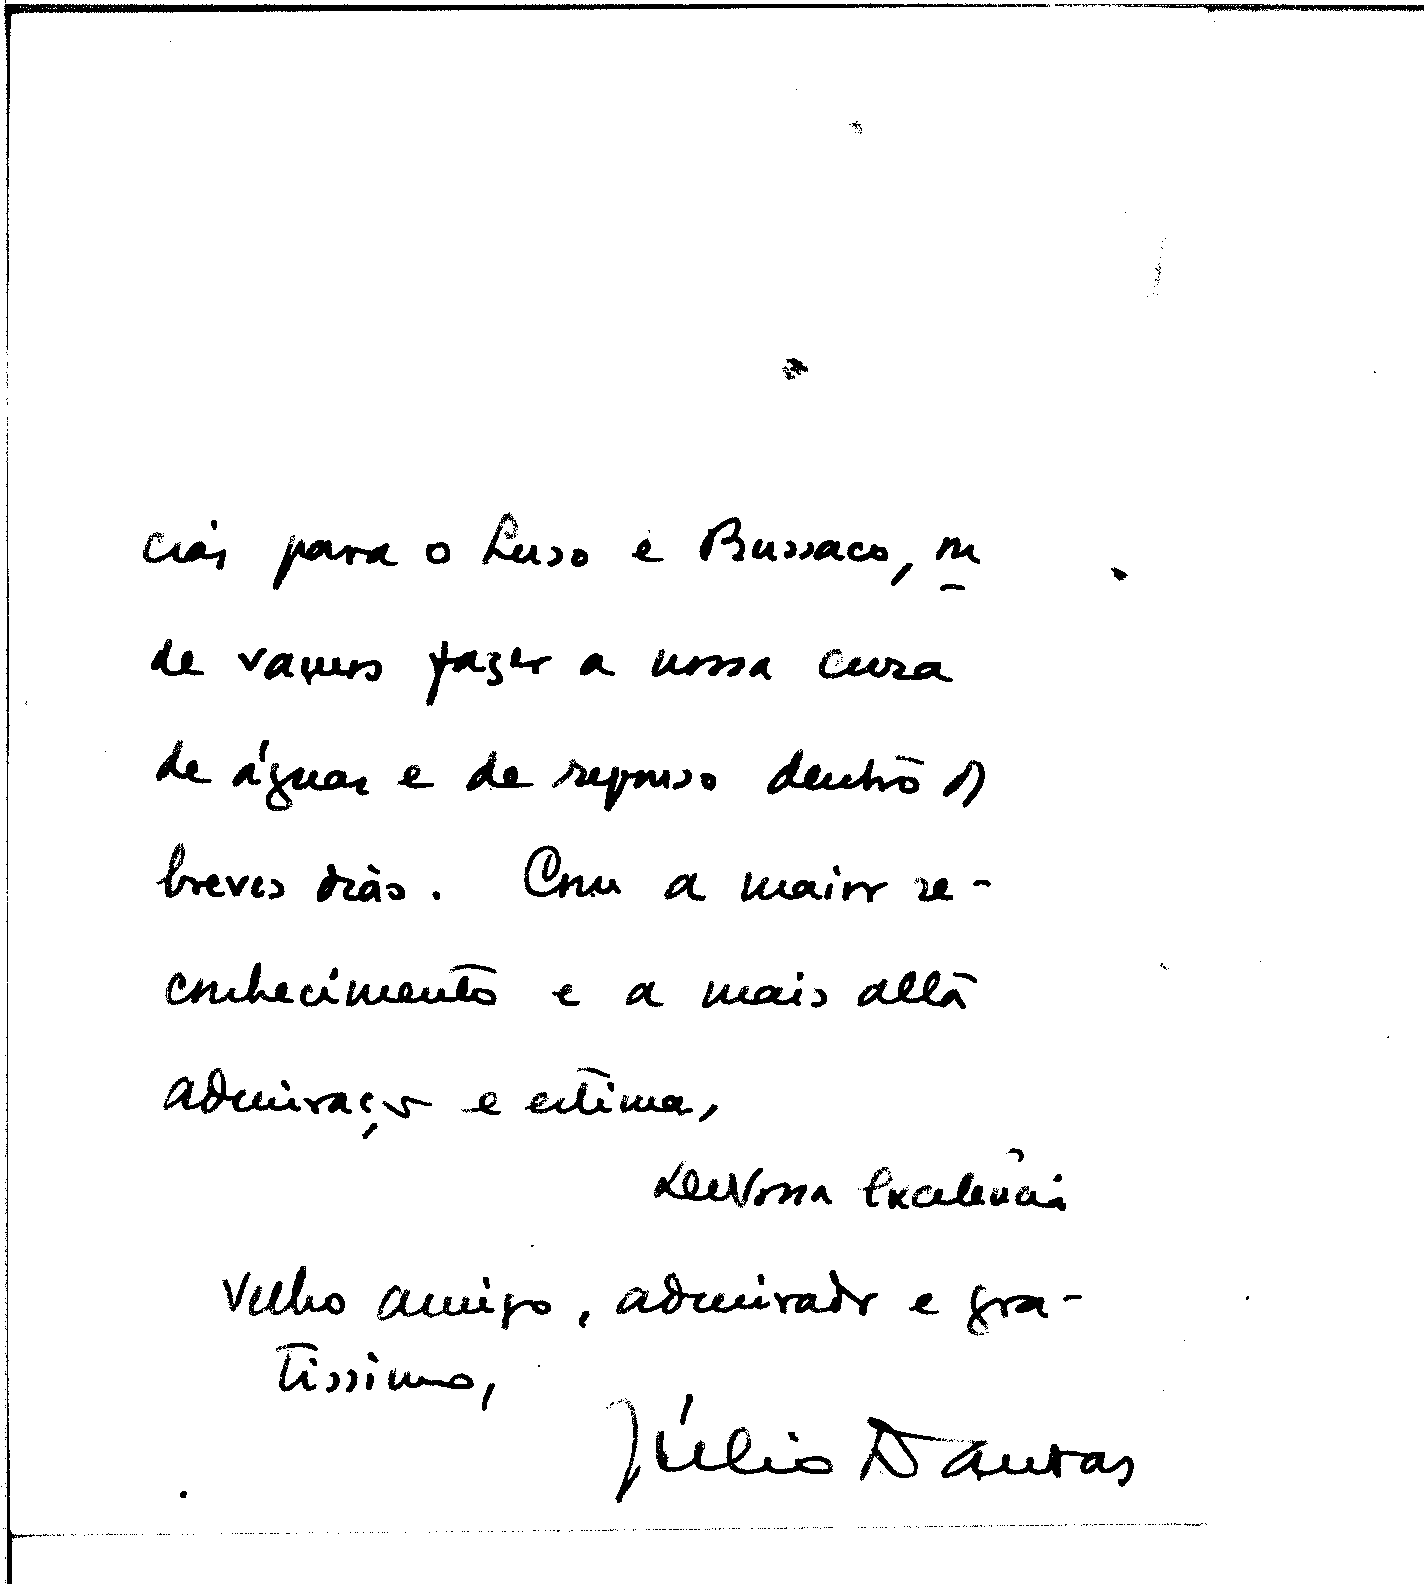 cias para o Luso e Bussaco, on
de vamos fazer a nossa cura
de águas e de repouso dentro de
breves dias. Com a maior re-
conhecimento e a mais alta
admiração e estima,
de Vossa Excelência
Velho amigo, admirador e gra-
tissimo,
Júlio Dantas